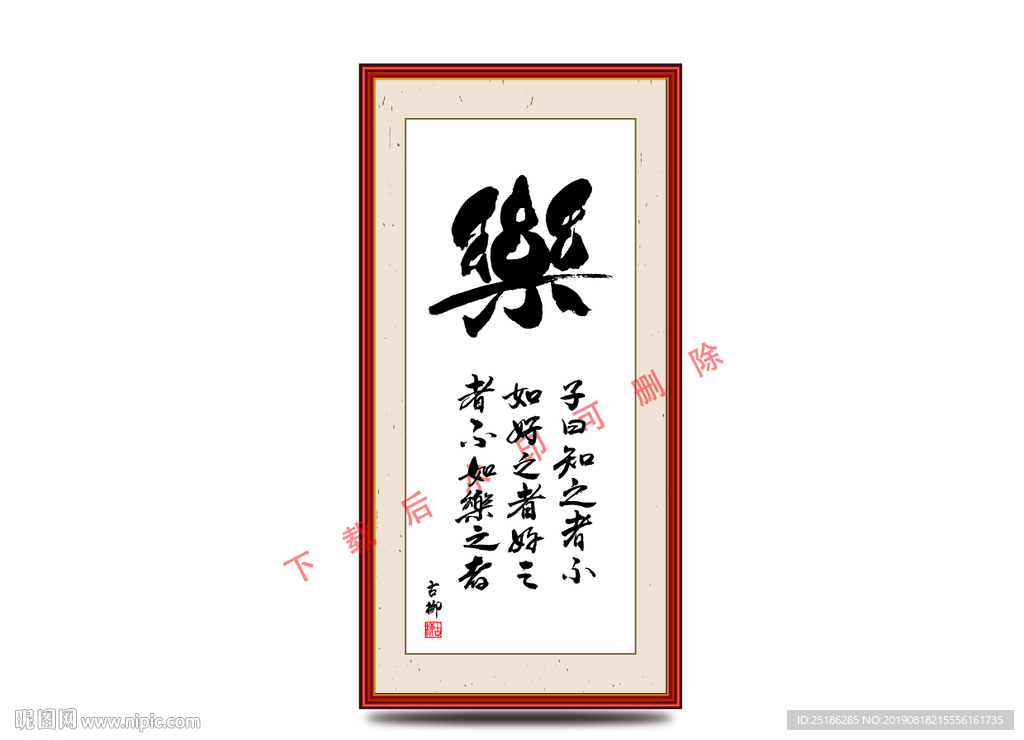 樂
子曰知之者不
如好之者好之
者不如樂之者
古柳
下载后水印可删除
昵图网 www.nipic.com
ID:25186285 NO:20190818215556161735